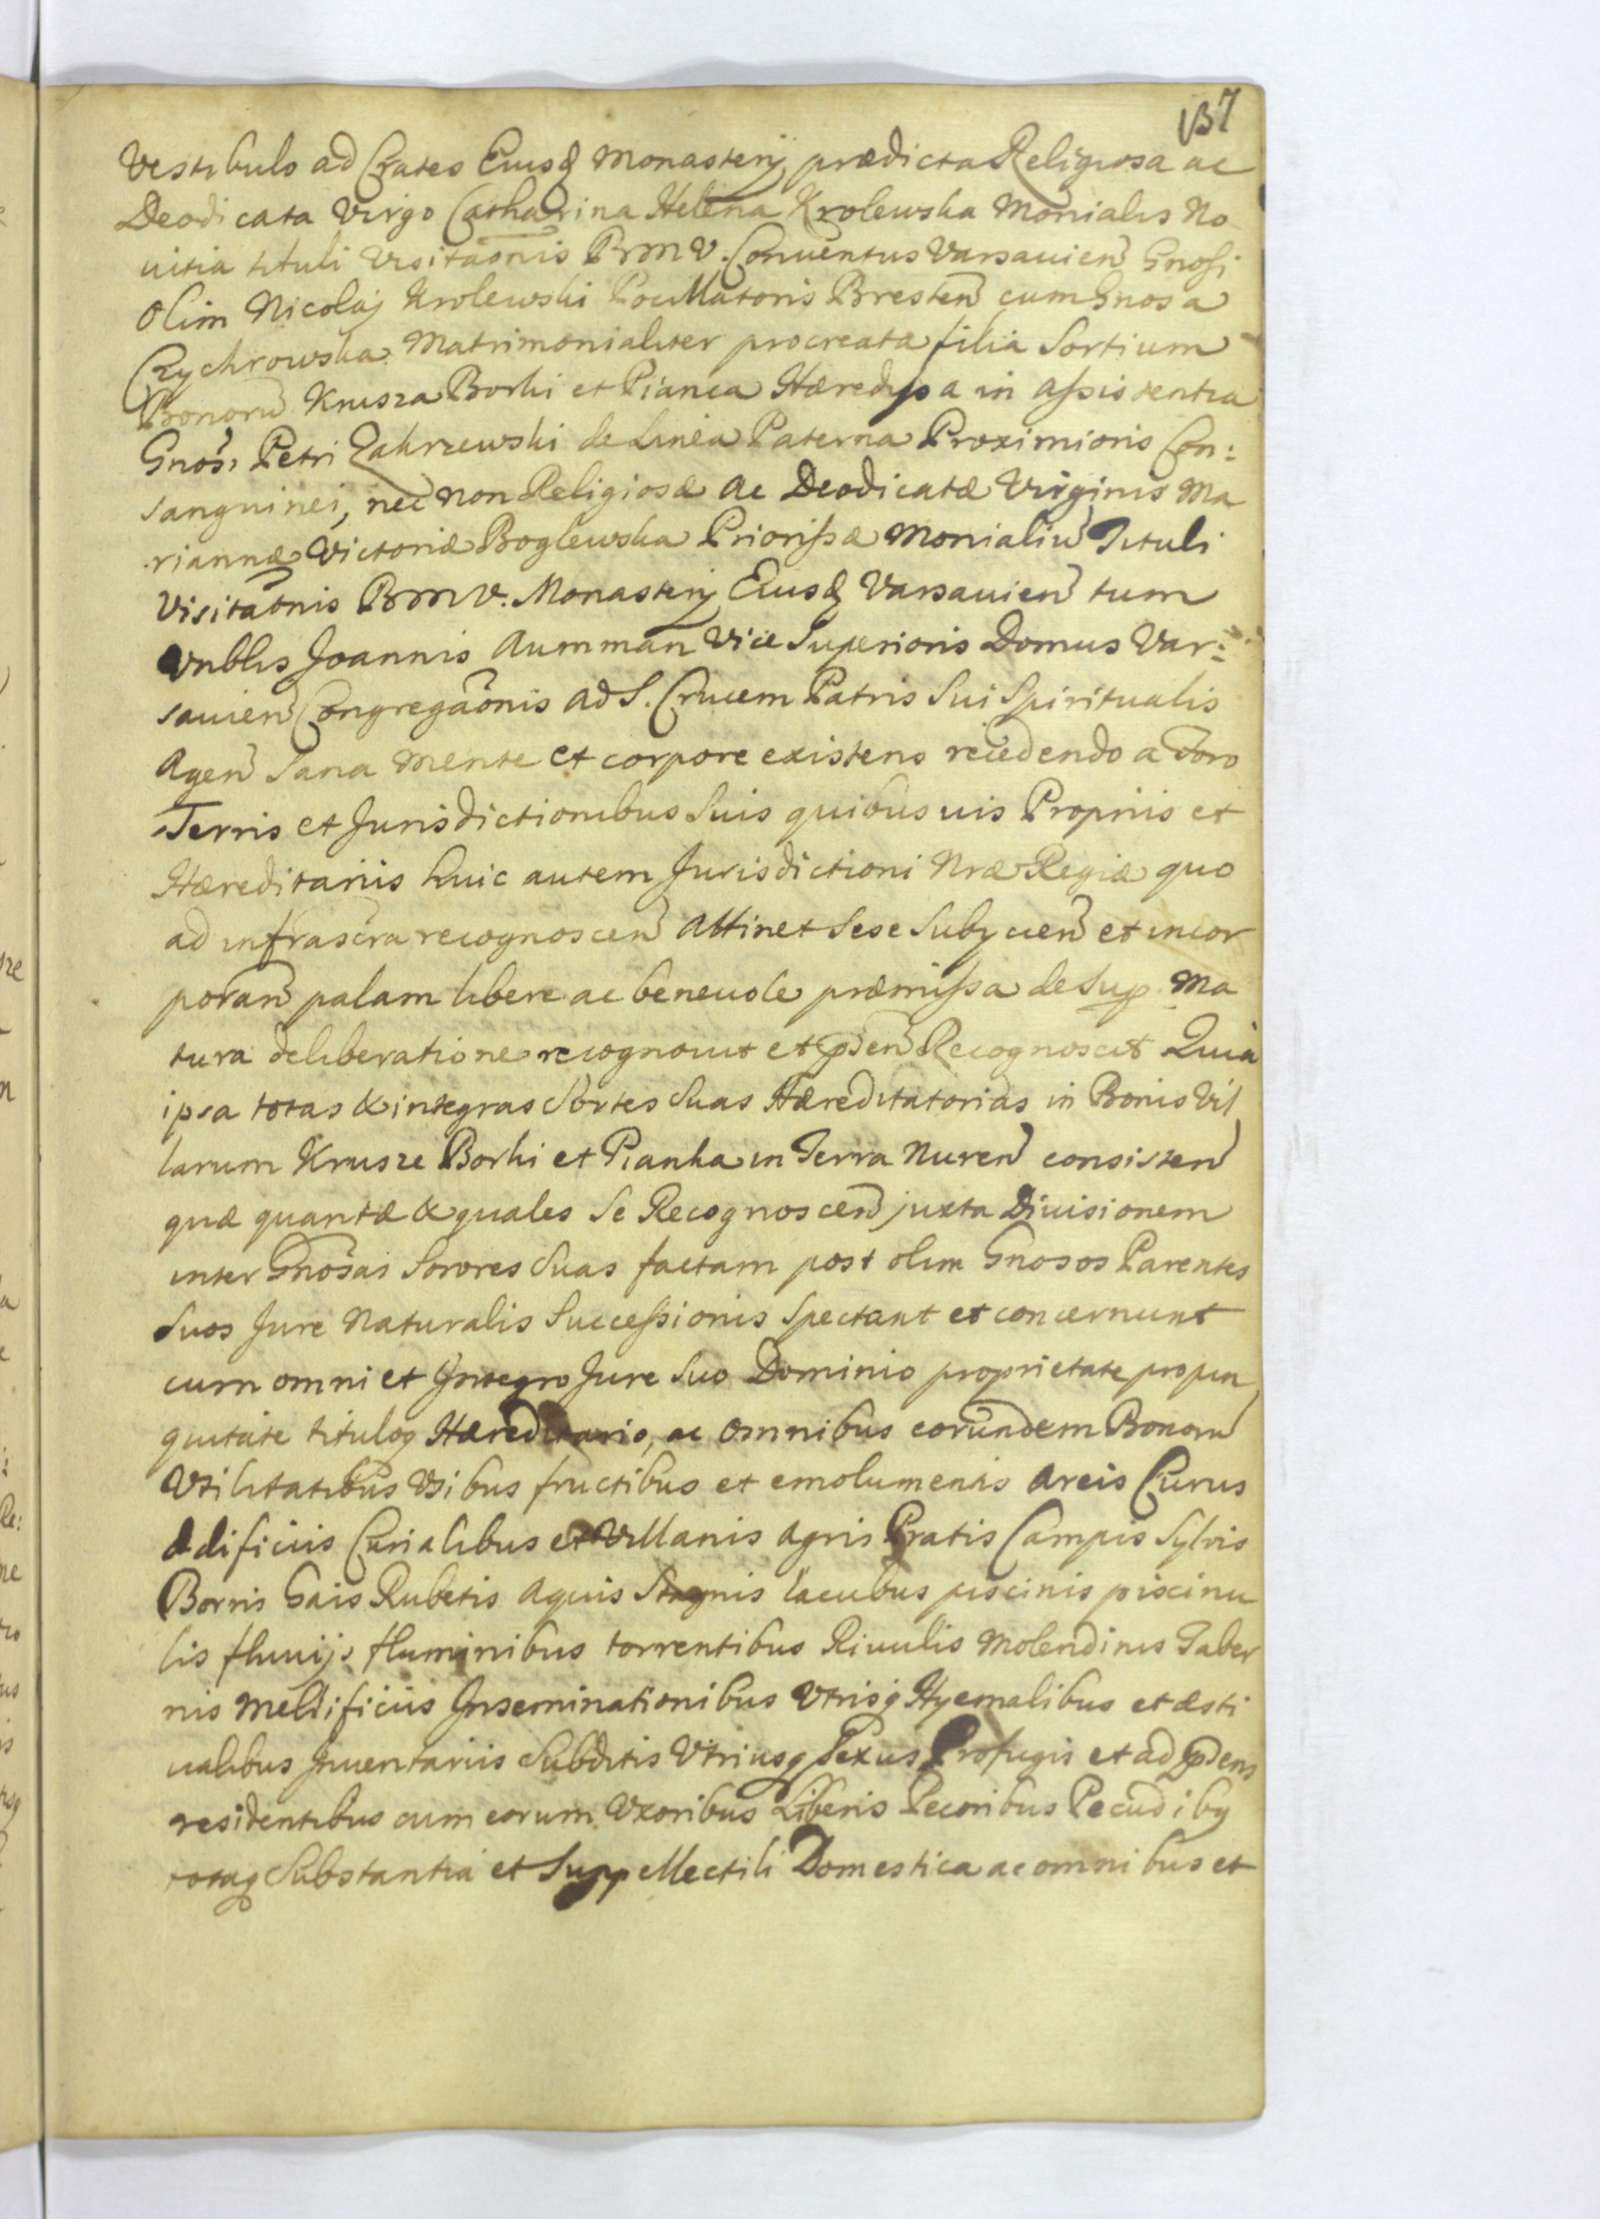 137
Vestibulo ad Crates Eiusq Monasterij prædicta Religiosa ac
Deodicata Virgo Catharina Helena Krolewska Monialis No
uitia tituli Visitaõnis BMV. Conuentus Varsauien Gnosi
Olim Nicolaj Krolewski Pocillatoris Bresten cum Gnosa
Czychrowska Matrimonialiter procreata filia Sortium
Bonorũ Krusza Borki et Pianca Hæredissa in assistentia
Gnosi Petri Zakrzewski de Linea Paterna Proximioris Con:
sanguinei, nec non Religiosæ ac Deodicatæ Virginis Ma
riannæ Victoriæ Boglewska Priorissæ Monialiũ Tituli
Visitaõnis BMV. Monasterij Eiusq Varsauien tum
Vnblis Joannis Aumman Vice Superioris Domus Var:
sauien Congregaõnis ad S. Crucem Patris Sui Spiritualis
Agen Sana mente et corpore existens recedendo a Foro
Terris et Jurisdictionibus Suis quibusuis Propriis et
Hæreditariis huic autem Jurisdictioni Nræ Regiæ quo
ad infrascra recognoscen attinet Sese Subijcien et incor
poran palam libere ac beneuole præmissa de Sup Ma
tura deliberatione recognouit et pden Recognoscit Quia
ipsa totas & integras Sortes Suas Hæreditatorias in Bonis Vil
larum Krusze Borki et Pianka in Terra Nuren consisten
quæ quantæ & quales Se Recognoscen juxta Diuisionem
inter Gnosas Sorores Suas factam post olim Gnosos Parentes
Suos Jure Naturalis Successionis Spectant et concernunt
cum omni et Integro Jure Suo Dominio proprietate propin
quitate tituloq Hæreditario, ac omnibus eorundem Bonorũ
Vtilitatibus Vsibus fructibus et emolumentis Areis Curiis
Ædificiis Curialibus et Villanis Agris Pratis Campis Sylvis
Borris Gais Rubetis Aquis Stagnis lacubus piscinis piscinu
lis fluuijs fluminibus torrentibus Riuulis Molendinis Taber
nis Mellificiis Inseminationibus Vtrisq Hyemalibus et æsti
ualibus Inuentariis Subditis Vtriusq Sexus Profugis et ad pdens
residentibus cum eorum Vxoribus Liberis Pecoribus Pecudibq
totaq Substantia et Suppellectili Domestica ac omnibus et